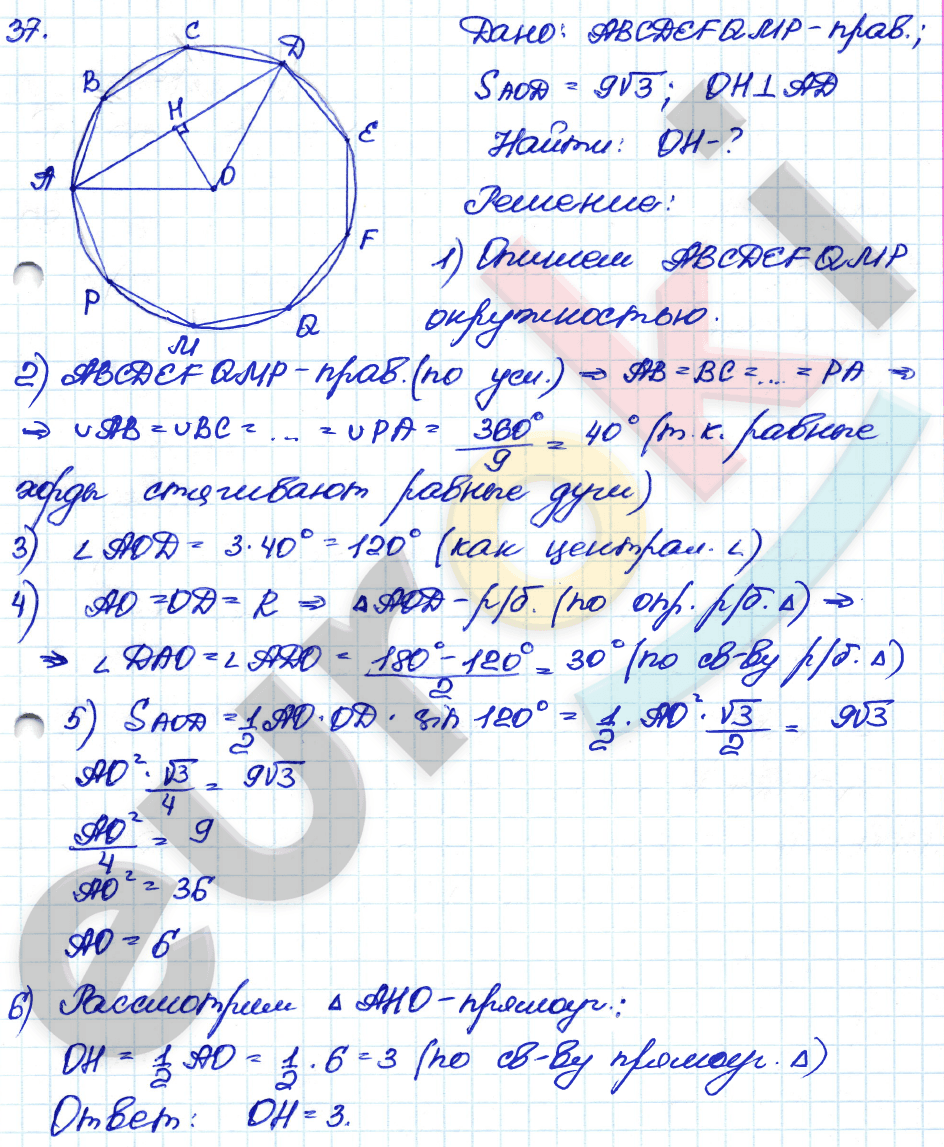 37.
C
D
B
H
E
A
O
F
P
Q
M
Дано: ABCDEFQMP - прав.;
S AOD = 9√3; OH ⊥ AD
Найти: OH-?
Решение:
1) Опишем ABCDEFQMP
окружностью.
2) ABCDEFQMP - прав. (по усл.) ⇒ AB = BC = ... = PA ⇒
⇒ ∪AB = ∪BC = ... = ∪PA = 360°/9 = 40° (т.к. равные
хорды стягивают равные дуги)
3) ∠AOD = 3·40° = 120° (как централ. ∠)
4) AO = OD = R ⇒ △AOD - р/б. (по опр. р/б. △) ⇒
⇒ ∠DAO = ∠ADO = (180° - 120°)/2 = 30° (по св-ву р/б. △)
5) S AOD = 1/2 AO · OD · sin 120° = 1/2 · AO² · √3/2 = 9√3
AO² · √3/4 = 9√3
AO²/4 = 9
AO² = 36
AO = 6
6) Рассмотрим △AHO - прямоуг.:
OH = 1/2 AO = 1/2 · 6 = 3 (по св-ву прямоуг. △)
Ответ: OH = 3.
euroki